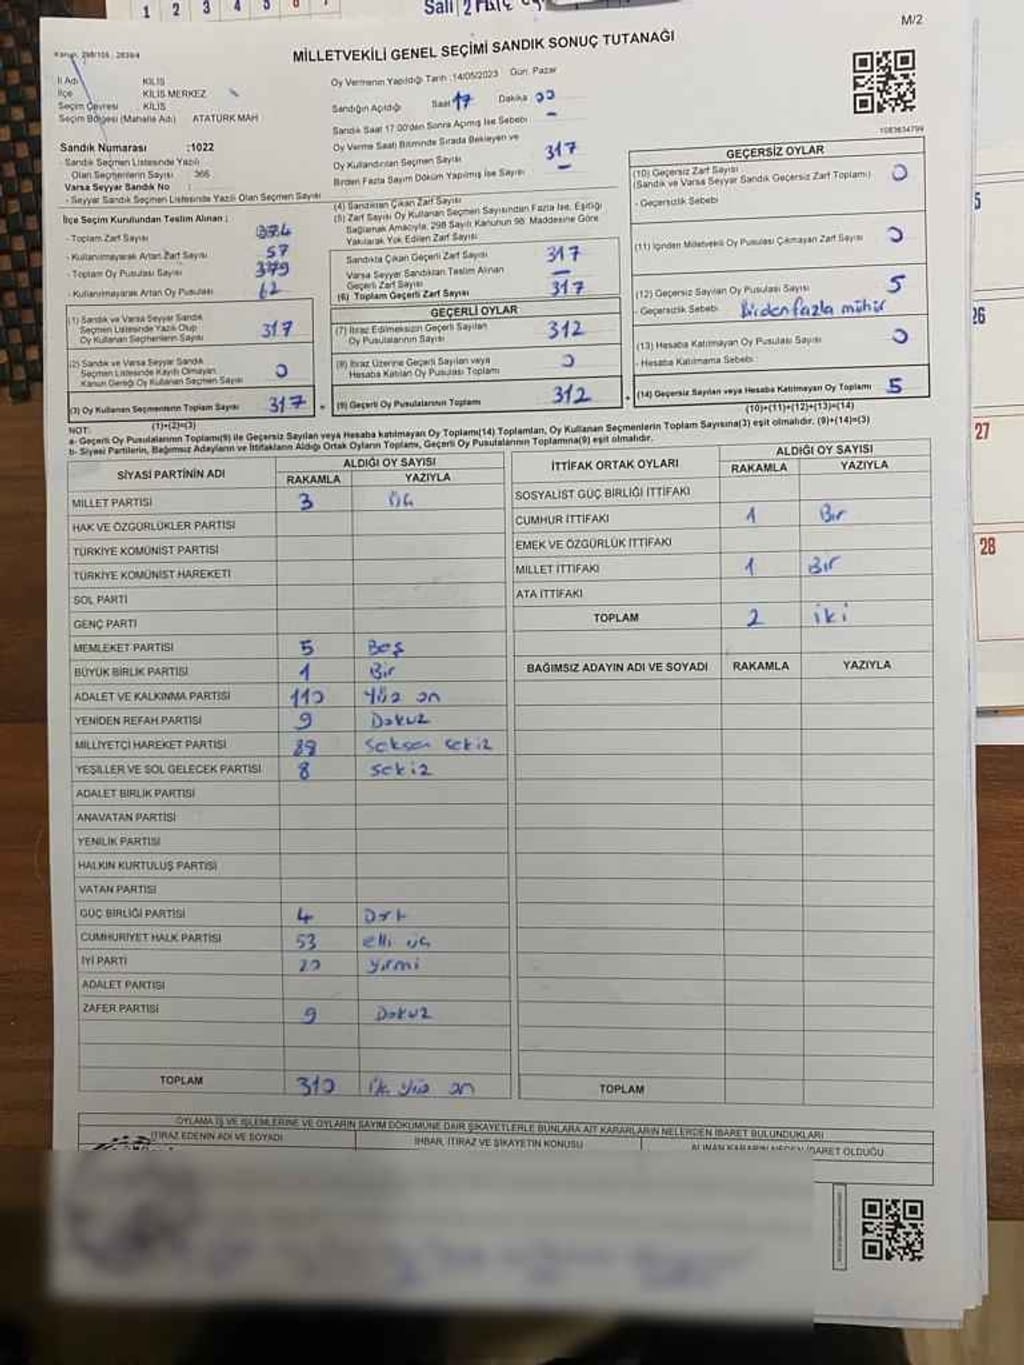 1 2 3 4 5 6 7
Salı
M/2
MİLLETVEKİLİ GENEL SEÇİMİ SANDIK SONUÇ TUTANAĞI
İl Adı KİLİS
İlçe KİLİS MERKEZ
Seçim Çevresi KİLİS
Seçim Bölgesi (Mahalle Adı) ATATÜRK MAH
Oy Vermenin Yapıldığı Tarih :14/05/2023 Gün: Pazar
Sandığın Açıldığı Saat 17 Dakika 00
Sandık Saat 17:00'den Sonra Açılmış İse Sebebi : -
Oy Verme Saati Bitiminde Sırada Bekleyen ve
Oy Kullandırılan Seçmen Sayısı 317
Birden Fazla Sayım Döküm Yapılmış İse Sayısı -
1083634799
Sandık Numarası :1022
- Sandık Seçmen Listesinde Yazılı
Olan Seçmenlerin Sayısı : 366
Varsa Seyyar Sandık No :
- Seyyar Sandık Seçmen Listesinde Yazılı Olan Seçmen Sayısı
İlçe Seçim Kurulundan Teslim Alınan ;
- Toplam Zarf Sayısı
- Kullanılmayarak Artan Zarf Sayısı 57
- Toplam Oy Pusulası Sayısı 379
- Kullanılmayarak Artan Oy Pusulası 62
(1) Sandık ve Varsa Seyyar Sandık
Seçmen Listesinde Yazılı Olup
Oy Kullanan Seçmenlerin Sayısı 317
(2) Sandık ve Varsa Seyyar Sandık
Seçmen Listesinde Kayıtlı Olmayan
Kanun Gereği Oy Kullanan Seçmen Sayısı 0
(3) Oy Kullanan Seçmenlerin Toplam Sayısı 317
(1)+(2)=(3)
(4) Sandıktan Çıkan Zarf Sayısı
(5) Zarf Sayısı Oy Kullanan Seçmen Sayısından Fazla İse, Eşitliği
Sağlamak Amacıyla, 298 Sayılı Kanunun 98. Maddesine Göre
Yakılarak Yok Edilen Zarf Sayısı
Sandıkta Çıkan Geçerli Zarf Sayısı 317
Varsa Seyyar Sandıktan Teslim Alınan
Geçerli Zarf Sayısı -
(6) Toplam Geçerli Zarf Sayısı 317
GEÇERLİ OYLAR
(7) İtiraz Edilmeksizin Geçerli Sayılan
Oy Pusulalarının Sayısı 312
(8) İtiraz Üzerine Geçerli Sayılan veya
Hesaba Katılan Oy Pusulası Toplamı 0
(9) Geçerli Oy Pusulalarının Toplamı 312
GEÇERSİZ OYLAR
(10) Geçersiz Zarf Sayısı
(Sandık ve Varsa Seyyar Sandık Geçersiz Zarf Toplamı) 0
- Geçersizlik Sebebi
(11) İçinden Milletvekili Oy Pusulası Çıkmayan Zarf Sayısı 0
(12) Geçersiz Sayılan Oy Pusulası Sayısı 5
- Geçersizlik Sebebi Birden fazla mühür
(13) Hesaba Katılmayan Oy Pusulası Sayısı 0
- Hesaba Katılmama Sebebi :
(14) Geçersiz Sayılan veya Hesaba Katılmayan Oy Toplamı 5
(10)+(11)+(12)+(13)=(14)
NOT:
a- Geçerli Oy Pusulalarının Toplamı(9) ile Geçersiz Sayılan veya Hesaba katılmayan Oy Toplamı(14) Toplamları, Oy Kullanan Seçmenlerin Toplam Sayısına(3) eşit olmalıdır. (9)+(14)=(3)
b- Siyasi Partilerin, Bağımsız Adayların ve İttifakların Aldığı Ortak Oyların Toplamı, Geçerli Oy Pusulalarının Toplamına(9) eşit olmalıdır.
SİYASİ PARTİNİN ADI ALDIĞI OY SAYISI
RAKAMLA YAZIYLA
MİLLET PARTİSİ 3 Üç
HAK VE ÖZGÜRLÜKLER PARTİSİ
TÜRKİYE KOMÜNİST PARTİSİ
TÜRKİYE KOMÜNİST HAREKETİ
SOL PARTİ
GENÇ PARTİ
MEMLEKET PARTİSİ 5 Beş
BÜYÜK BİRLİK PARTİSİ 1 Bir
ADALET VE KALKINMA PARTİSİ 110 Yüz on
YENİDEN REFAH PARTİSİ 9 Dokuz
MİLLİYETÇİ HAREKET PARTİSİ 88 Seksen sekiz
YEŞİLLER VE SOL GELECEK PARTİSİ 8 sekiz
ADALET BİRLİK PARTİSİ
ANAVATAN PARTİSİ
YENİLİK PARTİSİ
HALKIN KURTULUŞ PARTİSİ
VATAN PARTİSİ
GÜÇ BİRLİĞİ PARTİSİ 4 Dört
CUMHURİYET HALK PARTİSİ 53 elli üç
İYİ PARTİ 20 yirmi
ADALET PARTİSİ
ZAFER PARTİSİ 9 Dokuz
TOPLAM 310 yüz on
İTTİFAK ORTAK OYLARI ALDIĞI OY SAYISI
RAKAMLA YAZIYLA
SOSYALİST GÜÇ BİRLİĞİ İTTİFAKI
CUMHUR İTTİFAKI 1 Bir
EMEK VE ÖZGÜRLÜK İTTİFAKI
MİLLET İTTİFAKI 1 Bir
ATA İTTİFAKI
TOPLAM 2 iki
BAĞIMSIZ ADAYIN ADI VE SOYADI RAKAMLA YAZIYLA
TOPLAM
OYLAMA İŞ VE İŞLEMLERİNE VE OYLARIN SAYIM DÖKÜMÜNE DAİR ŞİKAYETLERLE BUNLARA AİT KARARLARIN NELERDEN İBARET BULUNDUKLARI
İTİRAZ EDENİN ADI VE SOYADI İHBAR, İTİRAZ VE ŞİKAYETİN KONUSU ALINAN KARARIN NEDEN İBARET OLDUĞU
5
26
27
28